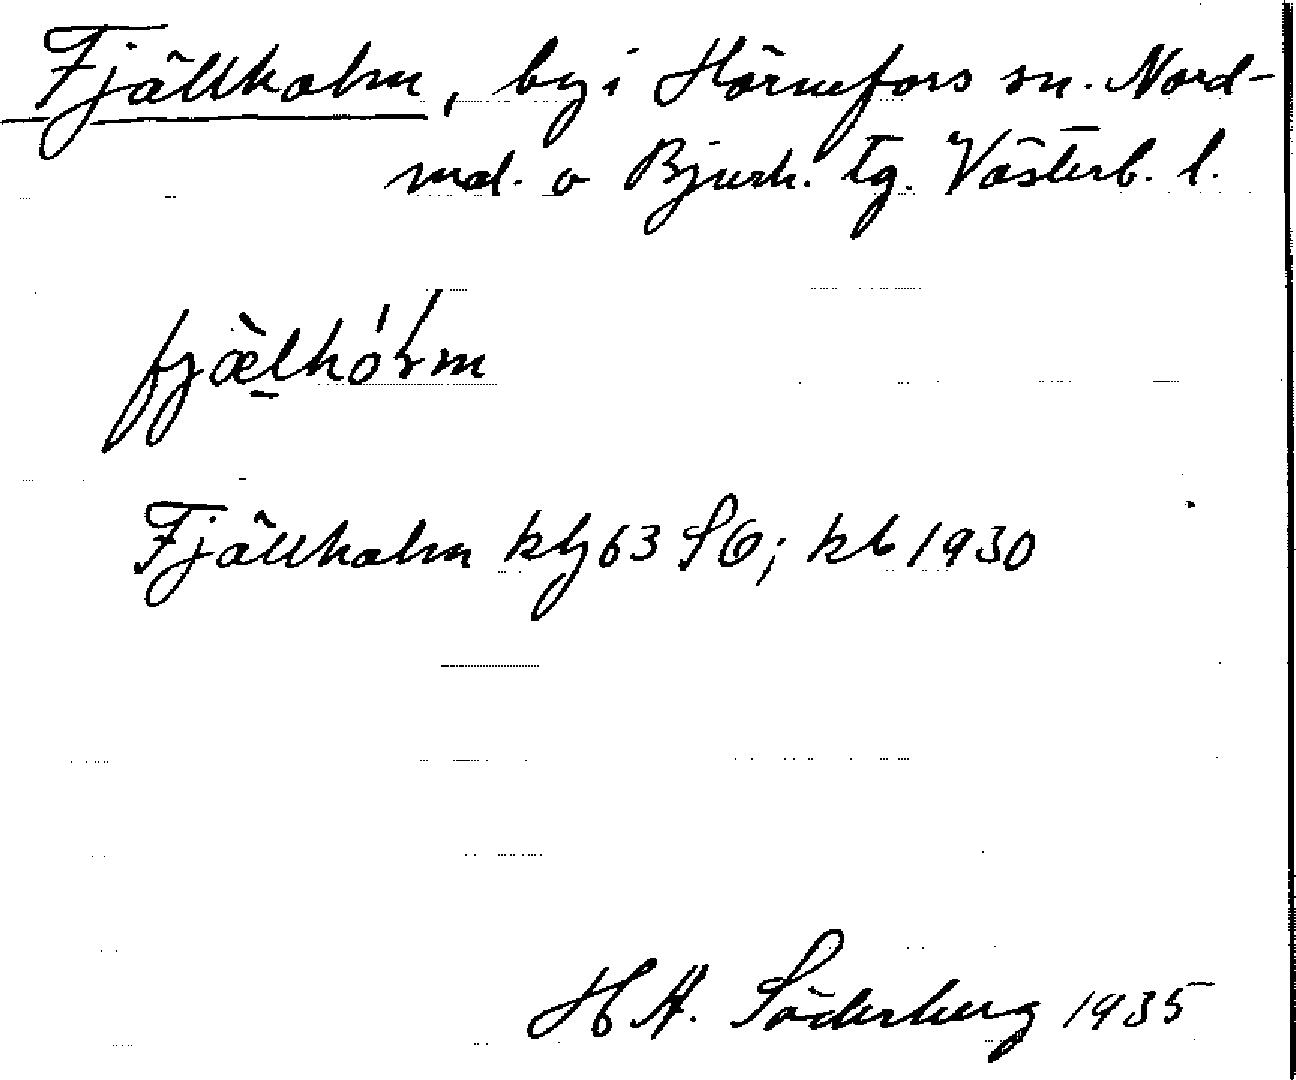 Fjällholm, by i Hörnefors sn. Nord-
mal. o Bjurh. tg. Västerb. l.
Fjällholm kbl 63 SO; kb 1930
H A. Söderberg 1935